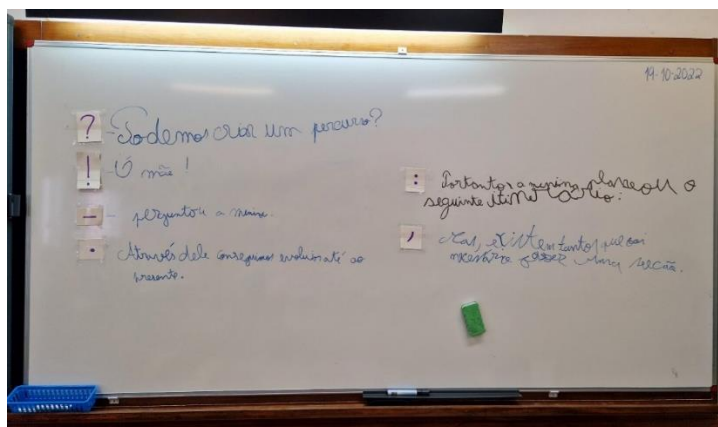 19-10-2022
? - Podemos criar um percurso?
! - Ó mãe!
- - perguntou a menina.
. Através dele conseguimos evoluir até ao
presente.
: Portanto, a menina planeou o
seguinte itinerário:
, Mas, existem tantos que vai
necessário fazer uma seleção.